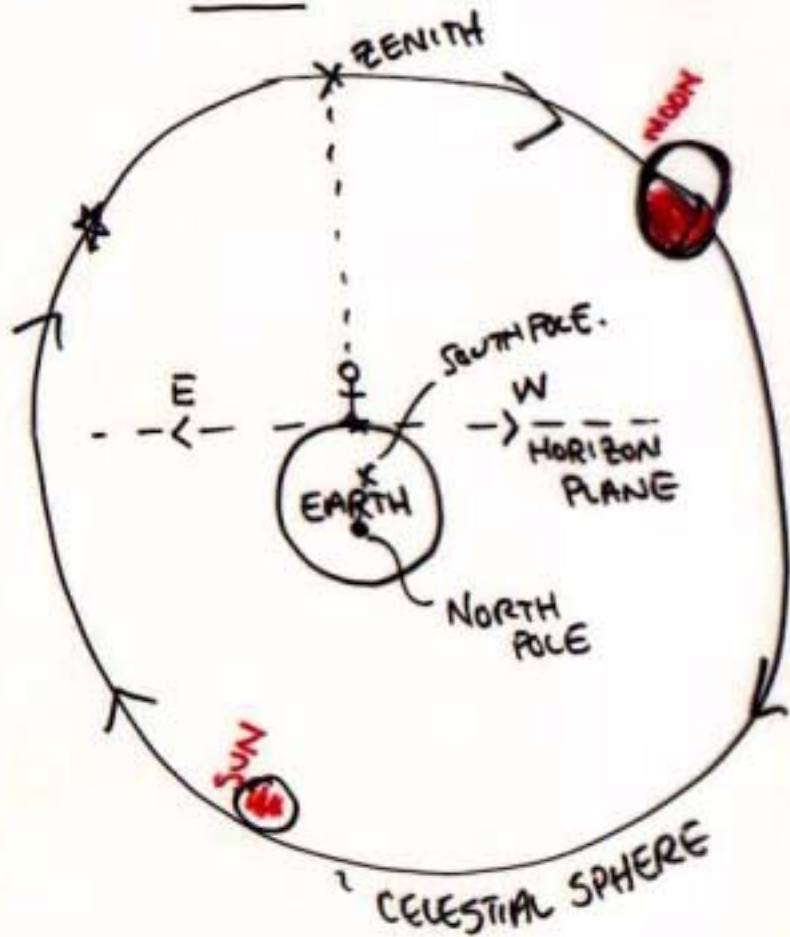 ZENITH
MOON
SOUTH POLE.
E
W
HORIZON
PLANE
EARTH
NORTH
POLE
SUN
CELESTIAL SPHERE